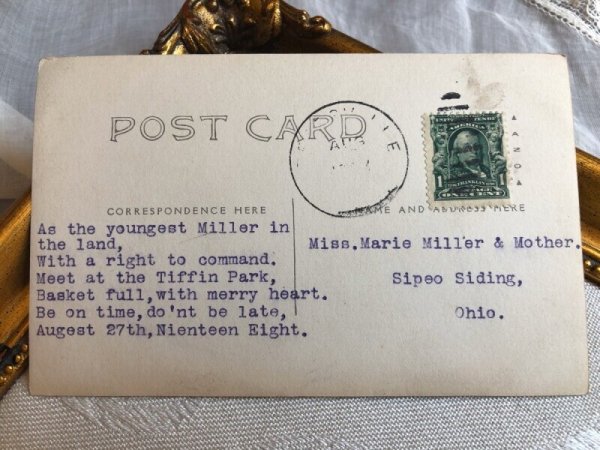 POST CARD
AUG
CORRESPONDENCE HERE
NAME AND ADDRESS HERE
As the youngest Miller in
the land,
With a right to command.
Meet at the Tiffin Park,
Basket full,with merry heart.
Be on time,do'nt be late,
Augest 27th,Nienteen Eight.
Miss.Marie Miller & Mother.
Sipeo Siding,
Ohio.